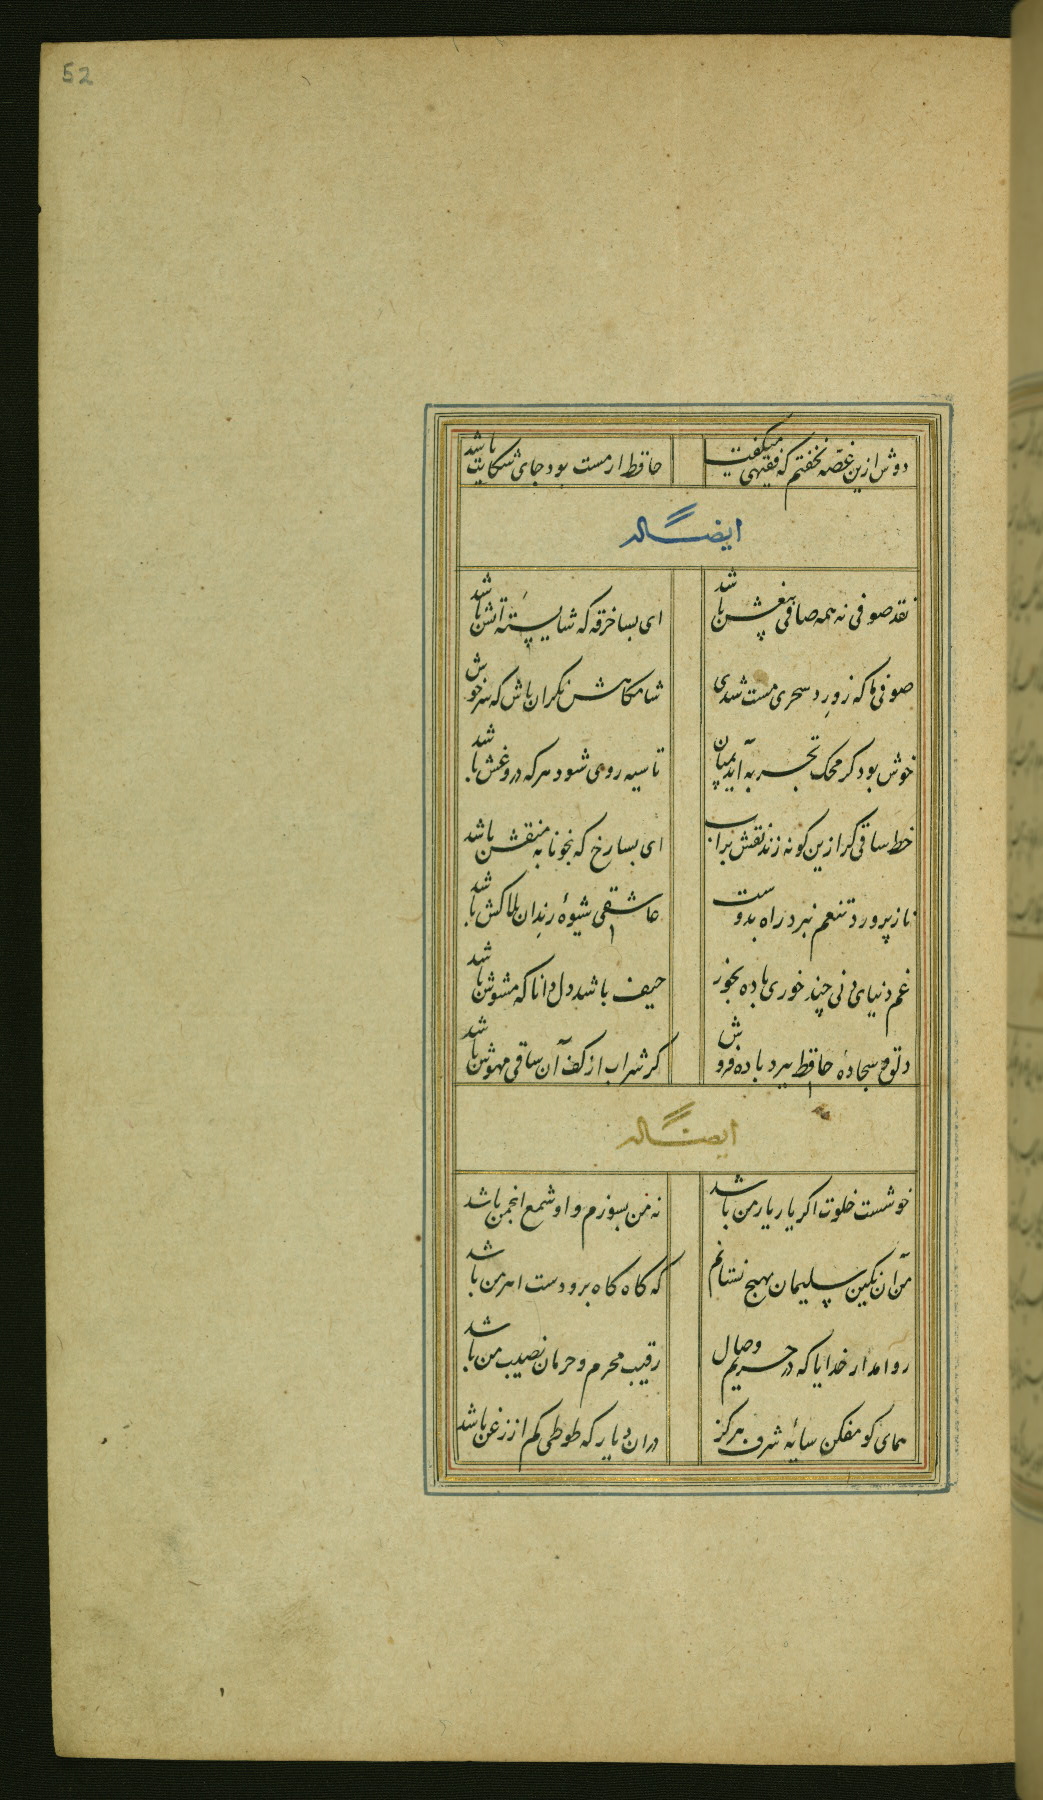 52
دوش ازین غصّه نخفتم که فقیهی میکفت حافظ ار مست بود جای شکایت باشد
ایضاله
نقد صوفی نه همه صافی بیغش باشد ای بسا خرقه که شایسته آتش باشد
صوفی ما که زورد سحری مست شدی شامکاهش نکران باش که سرخوش
خوش بود کر محک تجربه آید بمیان تا سیه روی شود هر که دروغش باشد
خط ساقی کر ازین کونه زند نقش براب ای بسا رخ که بخونابه منقش باشد
ناز پرورد تنعم نبرد راه بدوست عاشقی شیوهٔ رندان بلاکش باشد
غم دنیای دنی چند خوری باده بخور حیف باشد دل دانا که مشوش باشد
دلق و سجادهٔ حافظ ببرد باده فروش کر شراب از کف آن ساقی مهوش باشد
ایضاله
خوشست خلوت اکر یار یار من باشد نه من بسوزم و او شمع انجمن باشد
من آن نکین سلیمان بهیچ نستانم که کاه کاه برو دست اهرمن باشد
روا مدار خدایا که در حریم وصال رقیب محرم و حرمان نصیب من باشد
همای کو مفکن سایهٔ شرف هرکز دران دیار که طوطی کم از زغن باشد